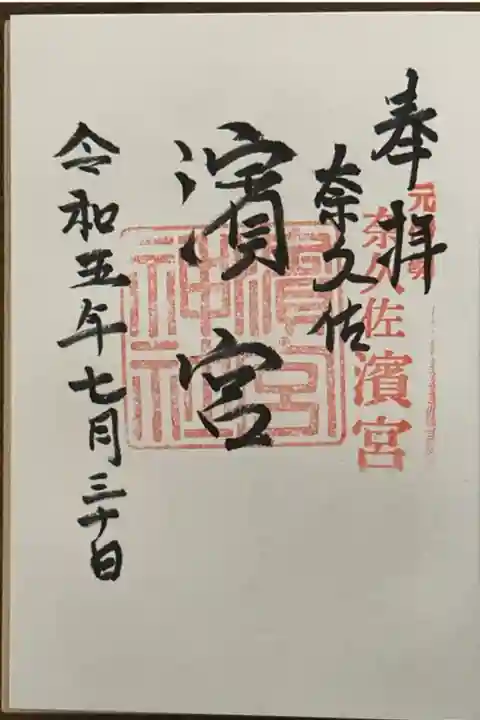 奉拝
奈久佐
濱宮
令和五年七月三十日
元伊勢
奈久佐濱宮
濱宮神社